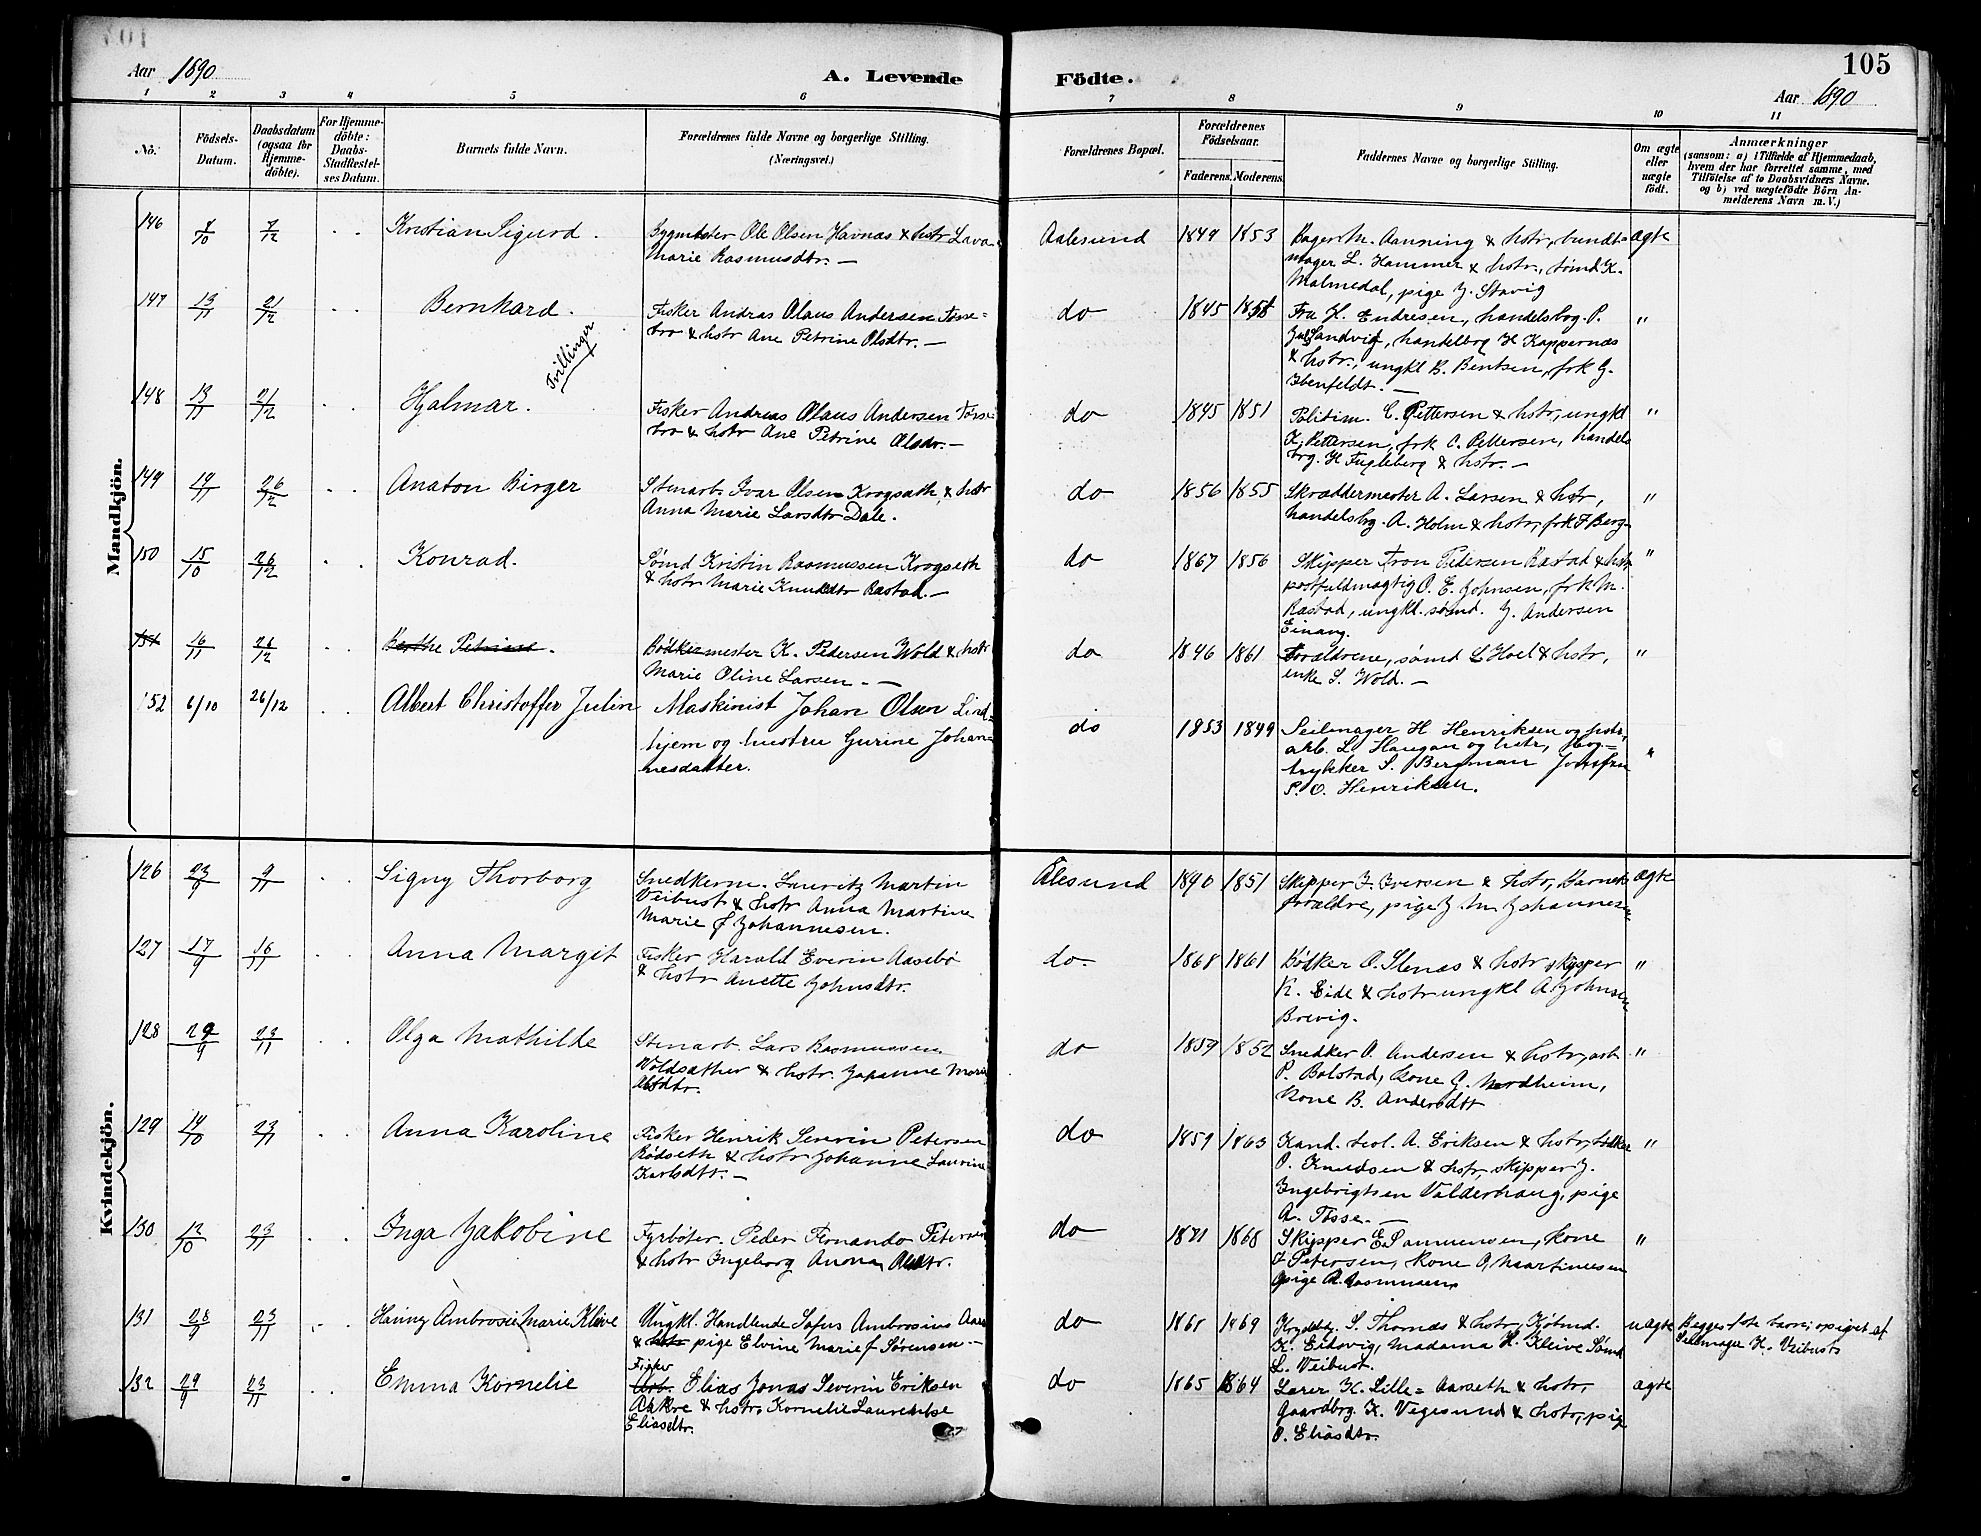 105
Aar 1890
A. Levende Födte.
Aar 1890
1 2 3 4 5 6 7 8 9 10 11
No.
Födsels-Datum.
Daabsdatum (ogsaa for Hjemme-döbte).
For Hjemme-döbte: Daabs-Stadfæstel-ses Datum.
Barnets fulde Navn.
Forældrenes fulde Navne og borgerlige Stilling.
(Næringsvei.)
Forældrenes Bopæl.
Forældrenes Födselsaar.
Faderens. Moderens.
Faddernes Navne og borgerlige Stilling.
Om ægte eller uægte födt.
Anmærkninger
(saasom: a) i Tilfælde af Hjemmedaab,
hvem der har forrettet samme, med
Tilföielse af to Daabsvidners Navne.
og b) ved uægtefödte Börn An-
melderens Navn m. V.)
Mandkjön.
146 7/12 Kristian Sigurd.
Ole Olsen Havnæs & hstr Lava
Marie Rasmusdtr. —
Aalesund 1849 1853
Aanning & hstr, bundt-
mager L. Hammer & hstr., sømd K.
Malmedal, pige J. Stavig
ægte
147 13/11 21/12 Bernhard.
Tvillinger
Fisker Andras Olaus Andersen Tøsse-
bro & hstr Ane Petrine Olsdtr. —
do 1845
Fru H. Endresen, handelsbog. P.
Sandvig, handelbog H Kappernæs
& hstr., ungkl B. Bentsen, frk J.
Ibenfeldt. —
"
148 13/11 21/12 Hjalmar.
Fisker Andreas Olaus Andersen Tøsse-
bro & hstr Ane Petrine Olsdr. —
do 1845 1851
Politim. C. Pettersen & hstr, ungkl
K. Pettersen, frk C. Pettersen, handels
brg. H Fugleberg & hstr. —
"
149 19/11 26/12 Anaton Birger
Stenarb. Ivar Olsen Krogsæth & hstr
Anna Marie Larsdtr Dale.
do 1856 1855
Skræddermester A. Larsen & hstr,
handelsbg. A. Holm & hstr, frk F Berg
"
150 15/10 26/12 Konrad.
Sømd Kristin Rasmussen Krogseth
& hstr Marie Knutsdtr Rastad. —
do 1867 1856
Skipper Tron Pedersen Rastad & hstr
postfuldmægtig O. E. Johnsen, frk M.
Rastad, ungkl. sømd. J. Andersen
Einang.
"
151 16/11 26/12 Berthe Petrine.
Bødkermester K. Pedersen Wold & hstr
Marie Oline Larsen. —
do 1846 1861
Forældrene, sømd L Hoel & hstr,
enke S. Wold. —
"
152 6/10 26/12 Albert Christoffer Julin
Maskinist Johan Olsen Lind-
hjem og hustru Gurine Johan-
nesdatter.
do 1853 1849
Seilmager H Henriksen og hstr,
arb. L. Haugan og hstr, Bog-
trykker S. Bergman Jomfru
P. O. Henriksen.
"
Kvindekjön.
126 23/9 9/11 Signy Thorborg
Snedkerm. Lauritz Martin
Veibust & hstr Anna Martine
Marie f Johannesen.
Ålesund 1851
Skipper J. Iversen & hstr, Barnets
forældre, pige J. M Johannesen
ægte
127 17/9 16/11 Anna Margit
Fisker Harald Everin Aasebø
& hstr Anette Johnsdtr.
do. 1868 1861
Bødker O. Slenæs & hstr, skipper
K. Eide & hstr ungkl A Johnsen
Brevig.
"
128 29/9 23/11 Olga Mathilde
Stenarb. Lars Rasmussen
Woldsæther & hstr. Johanne Marie
Olsdtr.
do 1852
Snedker O. Andersen & hstr, arb
P. Bolstad, kone J. Nordheim,
kone B. Andersdtr
"
129 14/10 23/11 Anna Karoline
Fisker Henrik Severin Petersen
Rødseth & hstr Johanne Laurine
Karlsdtr. —
do 1863
Kand. teol. A. Eriksen & hstr,
P. Knudsen & hstr, skipper J.
Ingebrigtsen Valderhaug, pige
A. Tøsse. —
"
130 12/10 23/11 Inga Jakobine
Fyrbøter. Peder Fernando Petersen
& hstr Ingeborg Anna Olsdtr.
do 1871 1868
Skipper E. Samuensen, kone
J Petersen, kone O. Martinusen
pige R. Rasmussen
"
131 28/9 23/11 Hanny Ambrosie Marie Kleve
Ungkl. Handlende Sofus Ambrosius
& hstr pige Elvine Marie f Sørensen —
do 1869
S. Thomæs & hstr, Kjøbmd.
K. Eidsvig, Madama H. Kleive Sømd
L. Veibust.
uægte
Begges 1ste barn; opgivet af
Seilmager K. Veibust
132 29/9 23/11 Emma Kornelie
Fisker
Arb. Elias Jonas Severin Eriksen
Aakre & hstr, Kornelie Laurentse
Eliasdtr.
do 1865 1864
Lærer K. Lille-Aarseth & hstr,
Gaardbrg. K. Vegsund & hstr, pig
O. Eliasdtr.
ægte